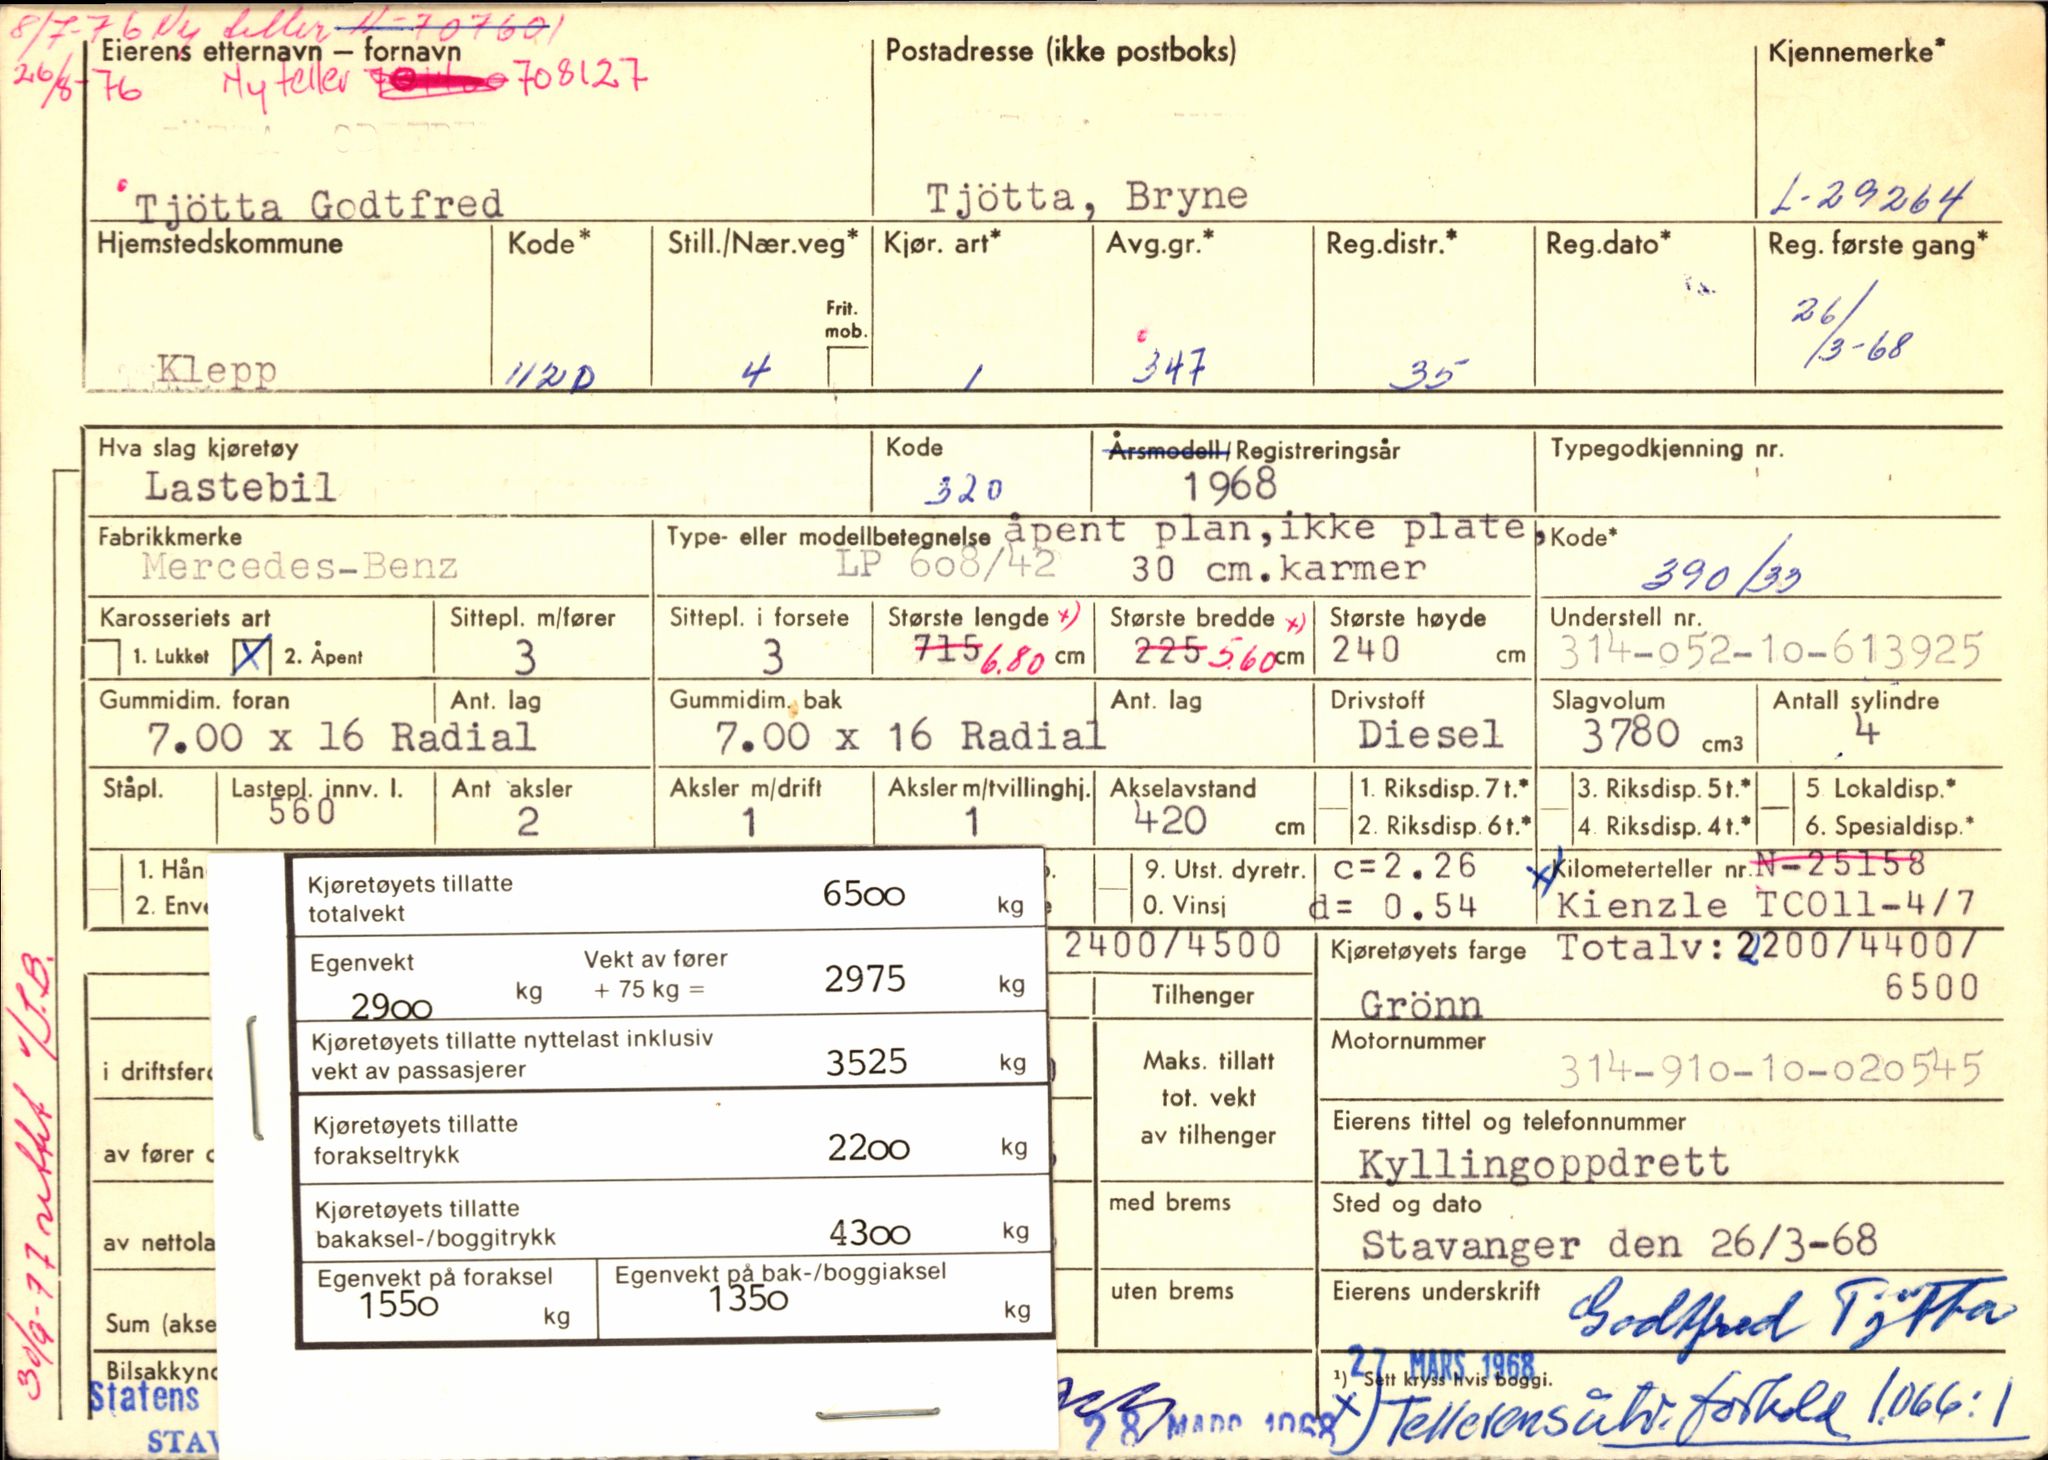 8/7-76 Ny teller N-707601
Eierens etternavn – fornavn
Postadresse (ikke postboks)
Kjennemerke*
26/8-76 Ny teller 708127
Tjötta Godtfred
Tjötta, Bryne
L-29264
Hjemstedskommune
Kode*
Still./Nær.veg*
Kjør. art*
Avg.gr.*
Reg.distr.*
Reg.dato*
Reg. første gang*
Frit. mob.
26/3-68
Klepp
1120
4
1
347
35
Hva slag kjøretøy
Kode
Årsmodell/Registreringsår
Typegodkjenning nr.
Lastebil
320
1968
Fabrikkmerke
Type- eller modellbetegnelse
åpent plan,ikke plate,
Kode*
Mercedes-Benz
LP 608/42
30 cm.karmer
390/33
Karosseriets art
Sittepl. m/fører
Sittepl. i forsete
Største lengde x)
Største bredde x)
Største høyde
Understell nr.
1. Lukket
X
2. Åpent
3
3
715 6.80 cm
225 5.60 cm
240 cm
314-052-10-613925
Gummidim. foran
Ant. lag
Gummidim. bak
Ant. lag
Drivstoff
Slagvolum
Antall sylindre
7.00 x 16 Radial
7.00 x 16 Radial
Diesel
3780 cm3
4
Ståpl.
Lastepl. innv. l.
Ant aksler
Aksler m/drift
Aksler m/tvillinghj.
Akselavstand
1. Riksdisp. 7 t.*
3. Riksdisp. 5 t.*
5 Lokaldisp.*
560
2
1
1
420 cm
2. Riksdisp. 6 t.*
4. Riksdisp. 4 t.*
6. Spesialdisp.*
1. Hån
9. Utst. dyretr.
c=2.26
x) Kilometerteller nr. N-25158
2. Enve
0. Vinsj
d= 0.54
Kienzle TCO11-4/7
2400/4500
Kjøretøyets farge
Totalv: 2200/4400/
6500
Tilhenger
Grönn
Motornummer
i driftsferd
Maks. tillatt
tot. vekt
av tilhenger
314-910-10-020545
Eierens tittel og telefonnummer
av fører o
Kyllingoppdrett
med brems
Sted og dato
av nettola
Stavanger den 26/3-68
uten brems
Eierens underskrift
Godtfred Tjøtta
Sum (akse
Bilsakkynd
27 MARS 1968
¹) Sett kryss hvis boggi.
Statens
STAV
28 MARS 1968
x) Tellerens utv. forhold 1.066:1
Kjøretøyets tillatte
totalvekt
6500 kg
Egenvekt
2900 kg
Vekt av fører
+ 75 kg =
2975 kg
Kjøretøyets tillatte nyttelast inklusiv
vekt av passasjerer
3525 kg
Kjøretøyets tillatte
forakseltrykk
2200 kg
Kjøretøyets tillatte
bakaksel-/boggitrykk
4300 kg
Egenvekt på foraksel
1550 kg
Egenvekt på bak-/boggiaksel
1350 kg
30/9-77 rettet